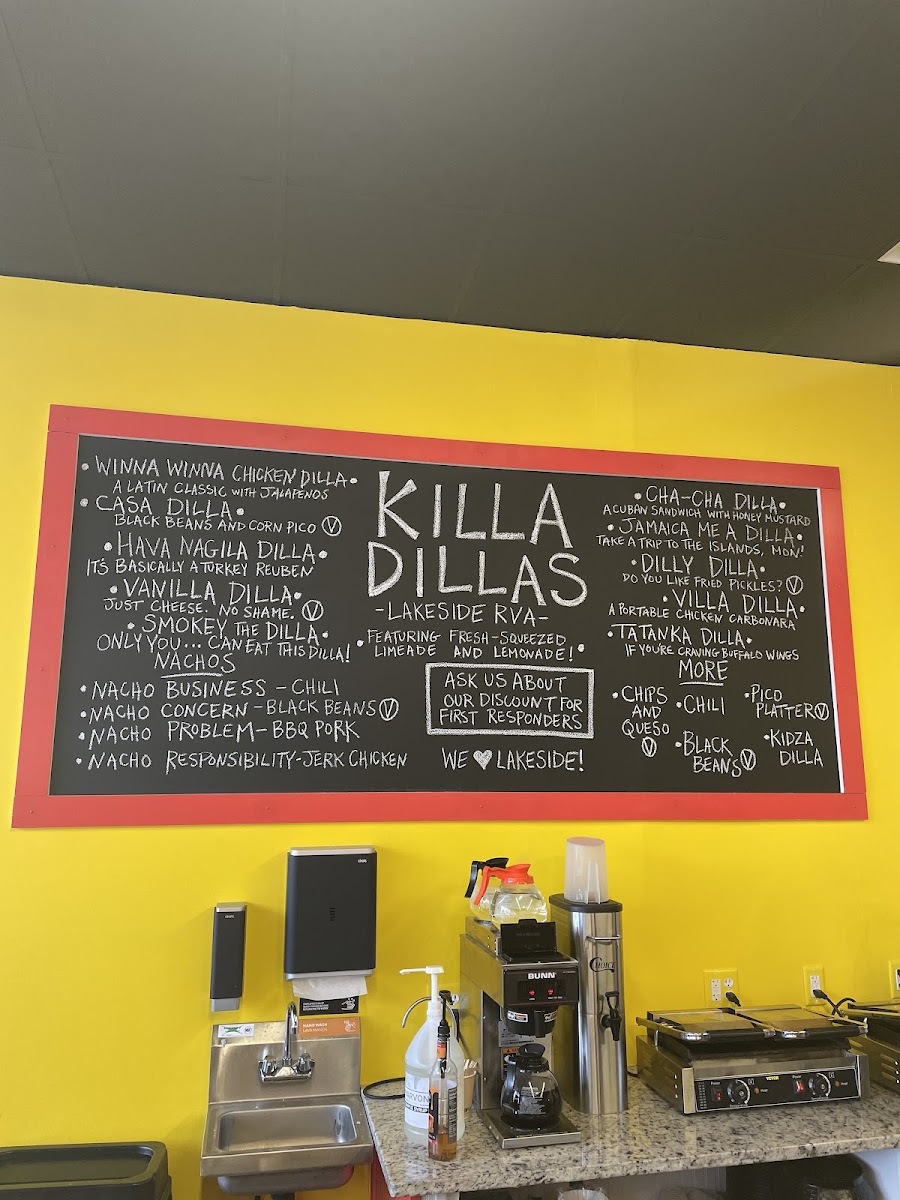 • WINNA WINNA CHICKEN DILLA •
A LATIN CLASSIC WITH JALAPENOS
• CASA DILLA •
BLACK BEANS AND CORN PICO Ⓥ
• HAVA NAGILA DILLA •
IT'S BASICALLY A TURKEY REUBEN
• VANILLA DILLA •
JUST CHEESE. NO SHAME. Ⓥ
• SMOKEY THE DILLA •
ONLY YOU... CAN EAT THIS DILLA!
NACHOS
• NACHO BUSINESS - CHILI
• NACHO CONCERN - BLACK BEANS Ⓥ
• NACHO PROBLEM - BBQ PORK
• NACHO RESPONSIBILITY - JERK CHICKEN
KILLA
DILLAS
- LAKESIDE RVA -
• FEATURING FRESH-SQUEEZED
LIMEADE AND LEMONADE! •
ASK US ABOUT
OUR DISCOUNT FOR
FIRST RESPONDERS
WE ♥ LAKESIDE!
• CHA-CHA DILLA •
A CUBAN SANDWICH WITH HONEY MUSTARD
• JAMAICA ME A DILLA •
TAKE A TRIP TO THE ISLANDS, MON!
• DILLY DILLA •
DO YOU LIKE FRIED PICKLES? Ⓥ
• VILLA DILLA •
A PORTABLE CHICKEN CARBONARA
• TATANKA DILLA •
IF YOU'RE CRAVING BUFFALO WINGS
MORE
• CHIPS
AND
QUESO
Ⓥ
• CHILI
• BLACK
BEANS Ⓥ
• PICO
PLATTER Ⓥ
• KIDZA
DILLA
BUNN
CHOICE
HAND WASH